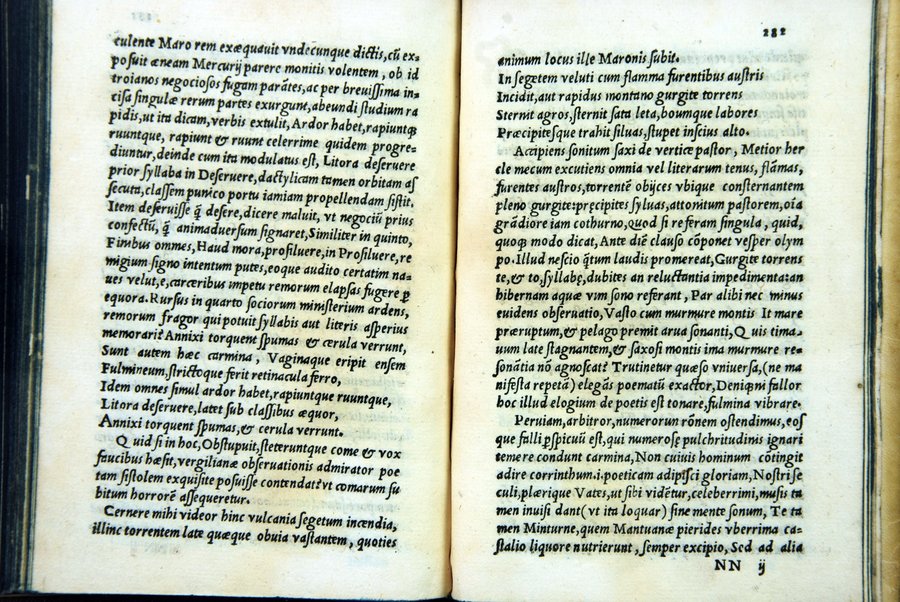 culente Maro rem exæquauit vndecunque dictis, cũ ex=
posuit æneam Mercurij parere monitis volentem, ob id
troianos negociosos fugam parãtes, ac per breuissima in=
cisa singulæ rerum partes exurgunt, abeundi studium ra
pidis, ut ita dicam, verbis extulit, Ardor habet, rapiuntq;
ruuntque, rapiunt & ruunt celerrime quidem progre=
diuntur, deinde cum ita modulatus est, Litora deseruere
prior syllaba in Deseruere, dactylicam tamen orbitam as
secuta, classem punico portu iamiam propellendam sistit.
Item deseruisse q̃ desere, dicere maluit, vt negociũ prius
confectũ, q̃ animaduersum signaret, Similiter in quinto,
Finibus omnes, Haud mora, prosiluere, in Prosiluere, re
migium signo intentum putes, eoque audito certatim na=
ues velut, e, carceribus impetu remorum elapsas fugere p̱
equora. Rursus in quarto sociorum ministerium ardens,
remorum fragor qui potuit syllabis aut literis asperius
memorari? Annixi torquent spumas & cerula verrunt,
Sunt autem hæc carmina, Vaginaque eripit ensem
Fulmineum, strictoque ferit retinacula ferro,
Idem omnes simul ardor habet, rapiuntque ruuntque,
Litora deseruere, latet sub classibus æquor,
Annixi torquent spumas, & cerula verrunt.
Quid si in hoc, Obstupuit, steteruntque come & vox
faucibus hæsit, vergilianæ obseruationis admirator poe
tam fistolem exquisite posuisse contendat? vt comarum su
bitum horrorẽ assequeretur.
Cernere mihi videor hinc vulcania segetum incendia,
illinc torrentem late quæque obuia vastantem, quoties
282
animum locus ille Maronis subit.
In segetem veluti cum flamma furentibus austris
Incidit, aut rapidus montano gurgite torrens
Sternit agros, sternit sata leta, boumque labores
Præcipitesque trahit siluas, stupet inscius alto.
Accipiens sonitum saxi de vertice pastor, Metior her
cle mecum excutiens omnia vel literarum tenus, flãmas,
furentes austros, torrentẽ obijces vbique consternantem
pleno gurgite: præcipites syluas, attonitum pastorem, oĩa
grãdiore iam cothurno, quod si referam singula, quid,
quoq; modo dicat, Ante diẽ clauso cõponet vesper olym
po. Illud nescio q̃tum laudis promereat, Gurgite torrens
te, & to, syllabę, dubites an reluctantia impedimenta: an
hibernam aquæ vim sono referant, Par alibi nec minus
euidens obseruatio, Vasto cum murmure montis It mare
præruptum, & pelago premit arua sonanti, Quis tima=
uum late stagnantem, & saxosi montis ima murmure re=
sonãtia nõ agnoscat? Trutinetur quæso vniuersa, (ne ma
nifesta repetã) elegãs poematũ exactor, Deniq; ni fallor
hoc illud elogium de poetis est tonare, fulmina vibrare.
Peruiam, arbitror, numerorum rõnem ostendimus, eos
que falli p̱spicuũ est, qui numerosæ pulchritudinis ignari
temere condunt carmina, Non cuiuis hominum cõtingit
adire corrinthum .i. poeticam adipisci gloriam, Nostri se
culi, plærique Vates, ut sibi vidẽtur, celeberrimi, musis ta
men inuisi dant (vt ita loquar) sine mente sonum, Te ta
men Minturne, quem Mantuanæ pierides vberrima ca=
stalio liquore nutrierunt, semper excipio, Sed ad alia
NN ij